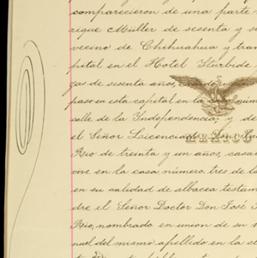 comparecieron de una parte
rique Müller de sesenta y
vecino de Chihuahua y tran
pital en el Hotel Iturbide
gas de sesenta años,
paso en esta capital en la
calle de la Independencia; y de
el Señor Licenciado
Rio de treinta y un años, casa
ve en la casa número tres de la
en su calidad de albacea testam
dre el Señor Doctor Don José
Rio, nombrado en union de su
nuel del mismo apellido en la